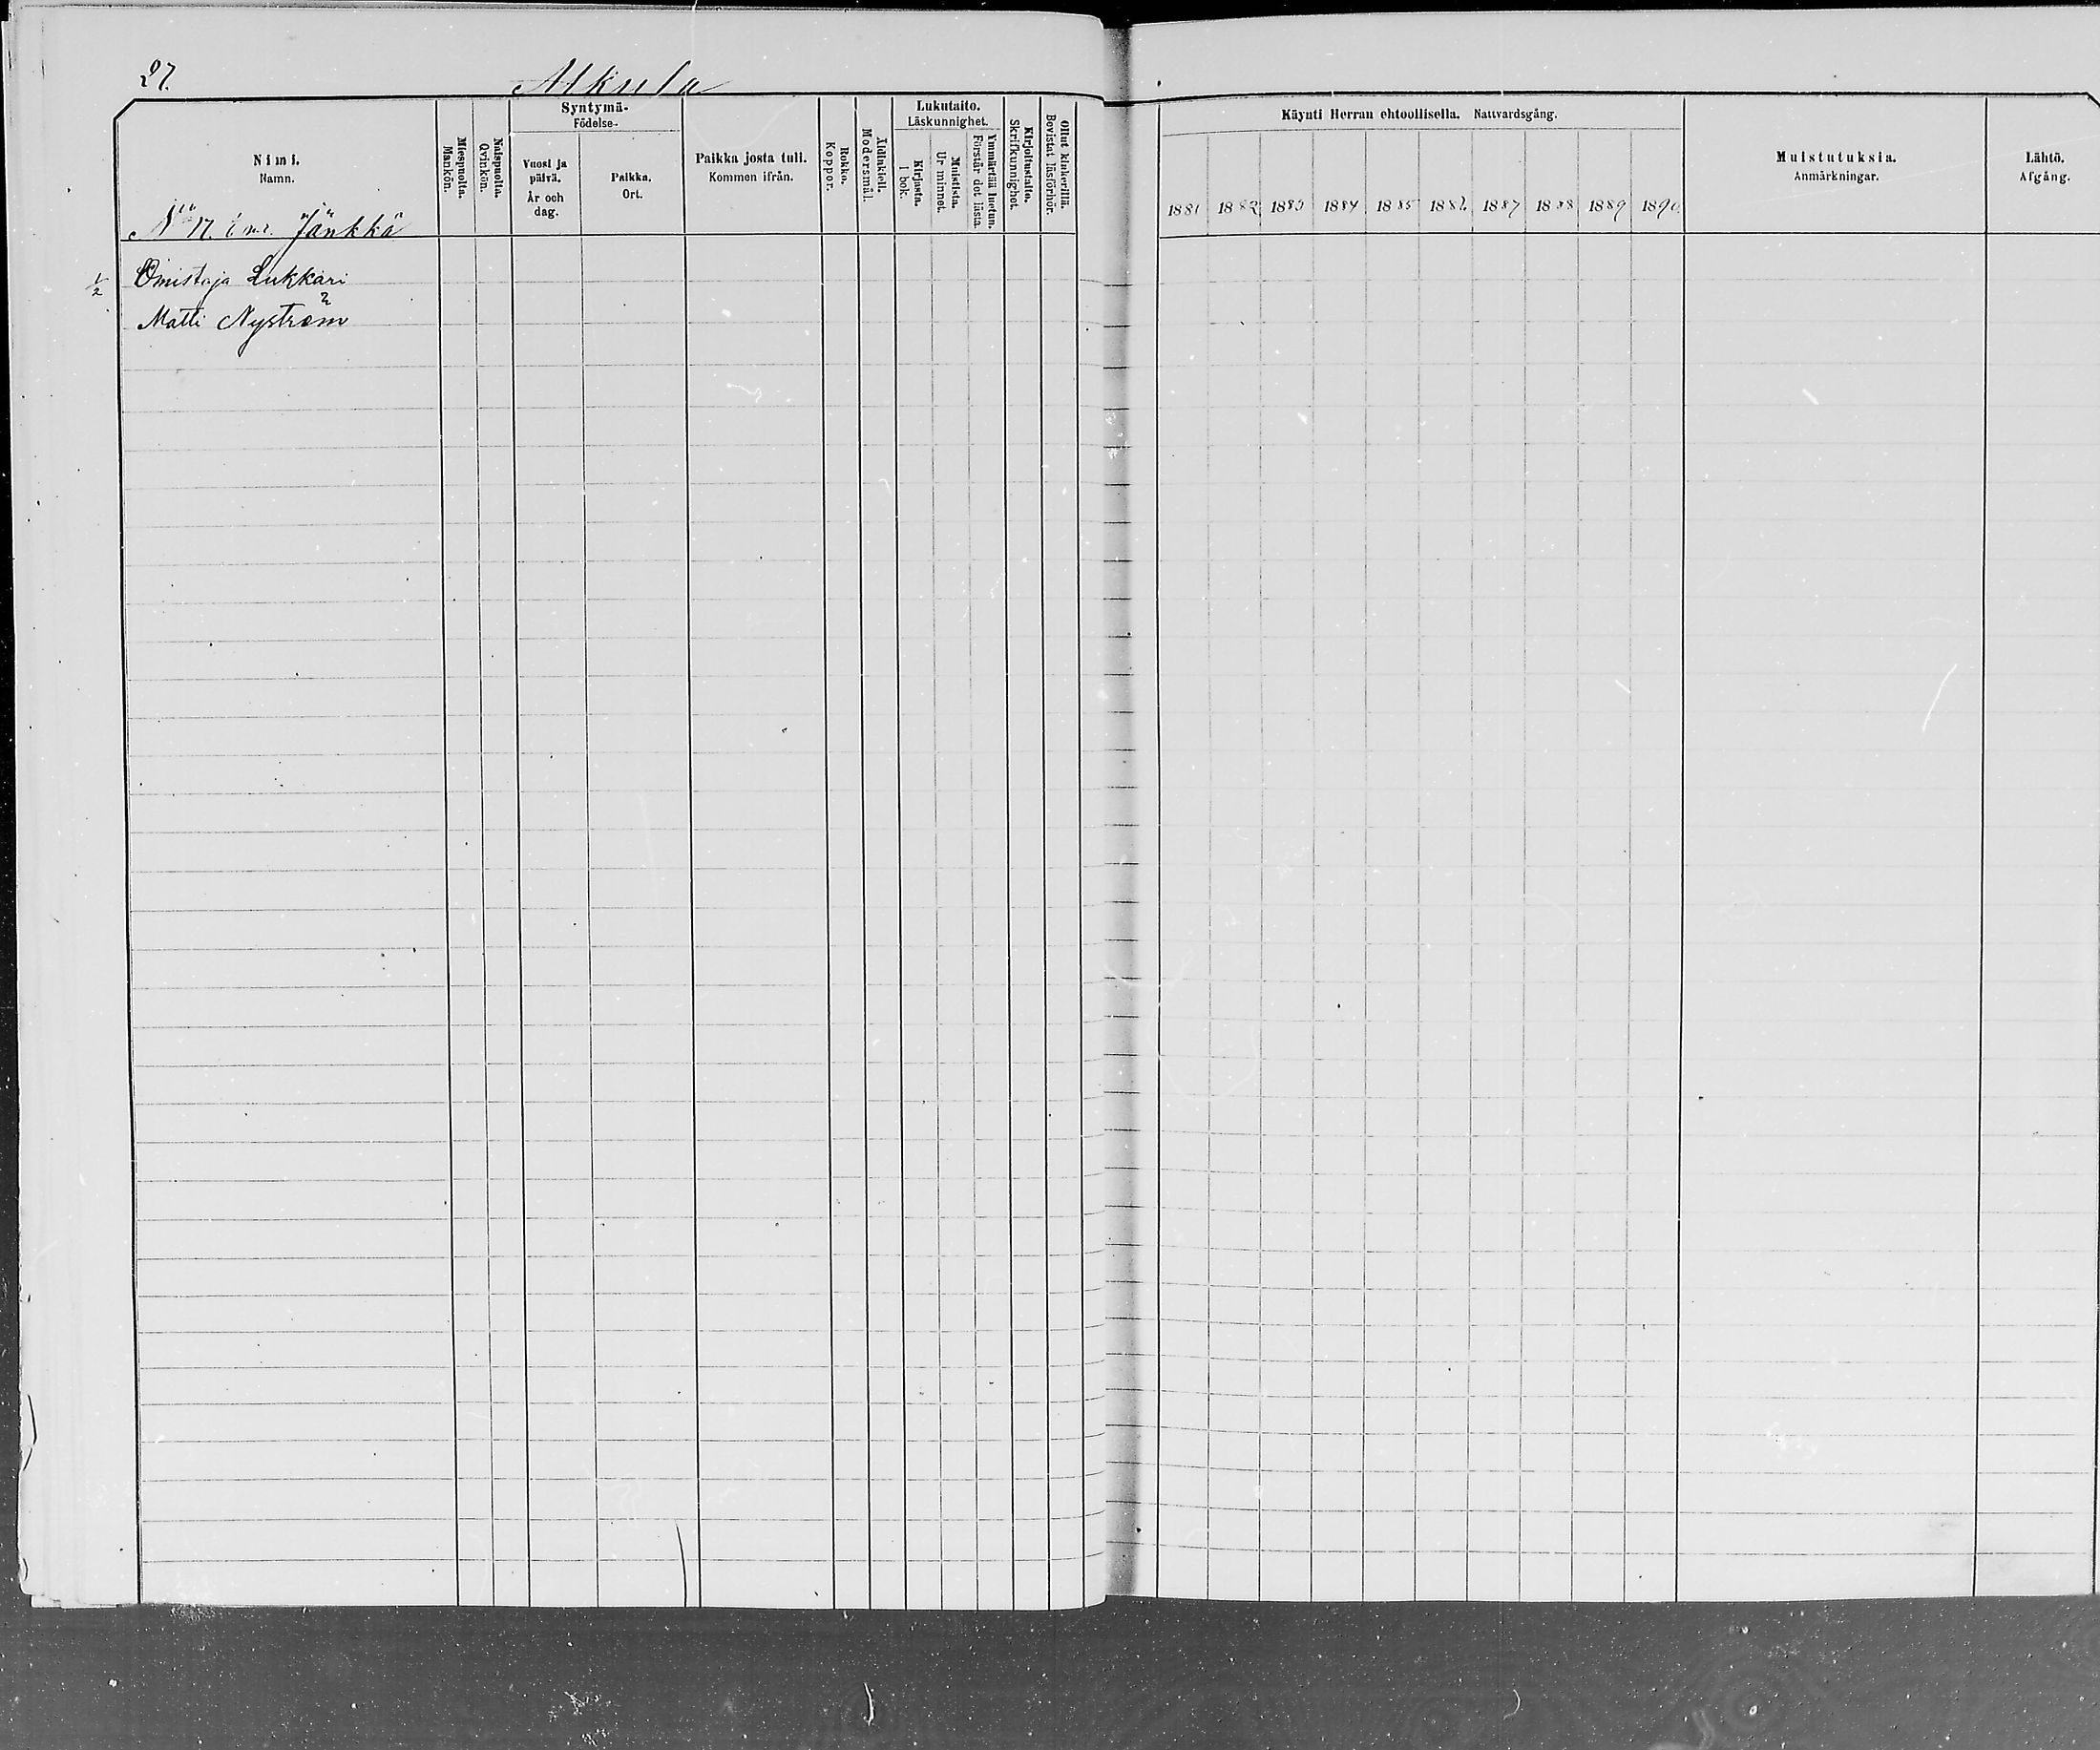 27.
Alkula
Nimi.
Namn.
Miespuolia.
Mankön.
Naispuolia.
Qvinkön.
Syntymä-
Födelse-
Vuosi ja
päivä.
År och
dag.
Paikka.
Ort.
Paikka josta tuli.
Kommen ifrån.
Rokko.
Koppor.
Äidinkieli.
Modersmål.
Lukutaito.
Läskunnighet.
Kirjasta.
I bok.
Muistista.
Ur minnet.
Ymmärtää luetun.
Förstår det lästa.
Kirjoitustaito.
Skrifkunnighet.
Ollut kinkerillä.
Bevistat läsförhör.
Käynti Herran ehtoollisella. Nattvardsgång.
1881 1882 1883 1884 1885 1886 1887 1888 1889 1890
Muistutuksia.
Anmärkningar.
Lähtö.
Afgång.
N:o 17. Jänkkä
1/2 Omistaja Lukkari
Matti Nyström